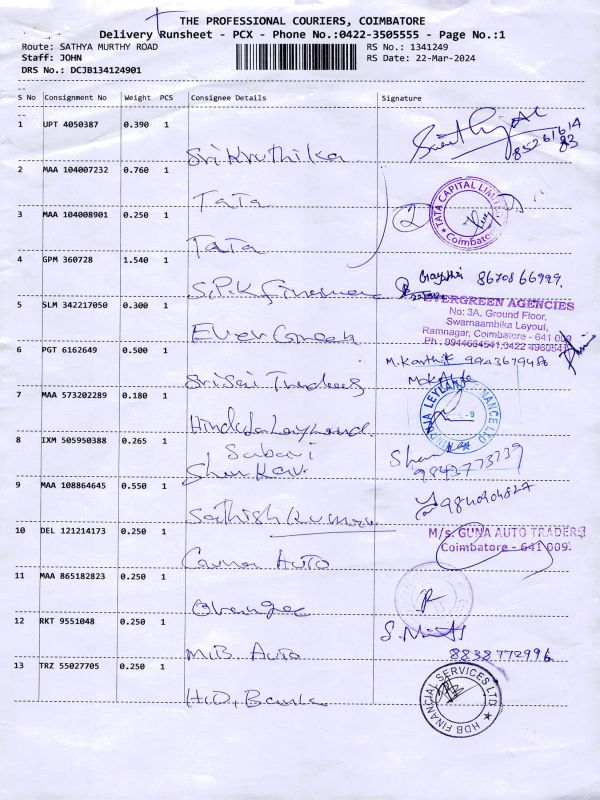 THE PROFESSIONAL COURIERS, COIMBATORE
Delivery Runsheet - PCX - Phone No.:0422-3505555 - Page No.:1
Route: SATHYA MURTHY ROAD RS No.: 1341249
Staff: JOHN RS Date: 22-Mar-2024
DRS No.: DCJB134124901
S No Consignment No Weight PCS Consignee Details Signature
1 UPT 4050387 0.390 1
Sri Kruthika
2 MAA 104007232 0.760 1
Tata
TATA CAPITAL LIMITED
Coimbatore
2
3 MAA 104008901 0.250 1
Tata
4 GPM 360728 1.540 1
S.P.K Finance
8670866999.
5 SLM 342217050 0.300 1
Ever Green
EVERGREEN AGENCIES
No: 3A, Ground Floor,
Swarnaambika Layout,
Ramnagar, Coimbatore - 641 009
Ph : 9944664541,0422 4960541
6 PGT 6162649 0.500 1
Sri Sai Traders
M. Karthik
7 MAA 573202289 0.180 1
Hinduja Leyland
HINDUJA LEYLAND FINANCE LTD
8 IXM 505950388 0.265 1
Sabari
9843773239
9 MAA 108864645 0.550 1
Sathish Kumar
10 DEL 121214173 0.250 1
Auto
M/s. GUNA AUTO TRADERS
Coimbatore - 641 009.
11 MAA 865182823 0.250 1
Orange
12 RKT 9551048 0.250 1
M.B. Auto
8838772996
13 TRZ 55027705 0.250 1
H.D. Bank
HDB FINANCIAL SERVICES LTD